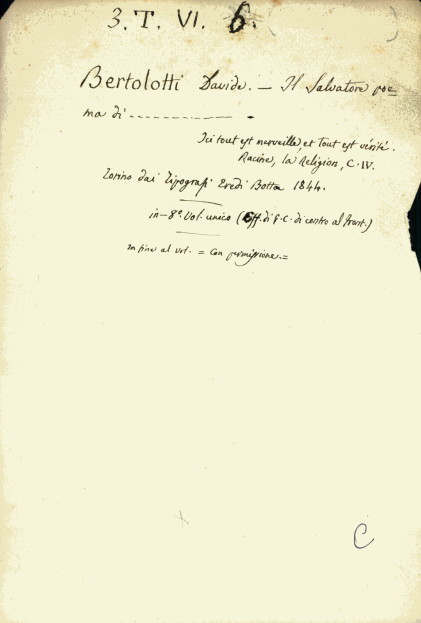 3. T. VI. 6.
Bertolotti Davide. — Il Salvatore poe=
ma di -----------
Ici tout est merveille, et tout est vérité.
Racine, la Religion, C. IV.
Torino dai Tipografi Eredi Botta 1844.
in-8º Vol. unico (Eff. di G. C. di contro al front.)
In fine al vol. = Con permissione. =
C